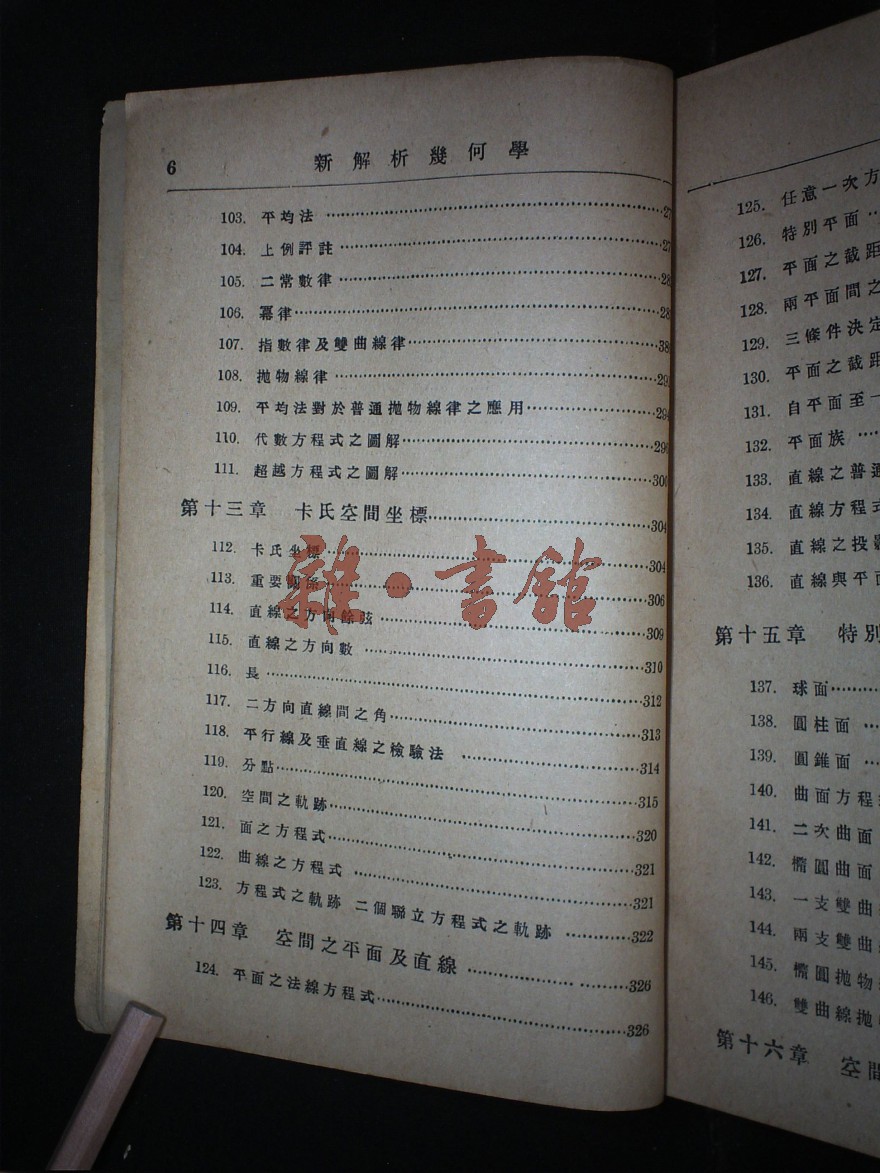 6 新解析幾何學
103. 平均法 27
104. 上例評註 27
105. 二常數律 28
106. 冪律 28
107. 指數律及雙曲線律 38
108. 拋物線律 29
109. 平均法對於普通拋物線律之應用 294
110. 代數方程式之圖解 29
111. 超越方程式之圖解 300
第十三章 卡氏空間坐標 304
112. 卡氏坐標 304
113. 重要關係 306
114. 直線之方向餘弦 309
115. 直線之方向數 310
116. 長 312
117. 二方向直線間之角 313
118. 平行線及垂直線之檢驗法 314
119. 分點 315
120. 空間之軌跡 320
121. 面之方程式 321
122. 曲線之方程式 321
123. 方程式之軌跡 二個聯立方程式之軌跡 322
第十四章 空間之平面及直線 326
124. 平面之法線方程式 326
雜·書館
125. 任意一次方
126. 特別平面
127. 平面之截距
128. 兩平面間之
129. 三條件決定
130. 平面之截距
131. 自平面至一
132. 平面族
133. 直線之普通
134. 直線方程式
135. 直線之投影
136. 直線與平面
第十五章 特別
137. 球面
138. 圓柱面
139. 圓錐面
140. 曲面方程
141. 二次曲面
142. 橢圓曲面
143. 一支雙曲
144. 兩支雙曲
145. 橢圓拋物
146. 雙曲線拋
第十六章 空間